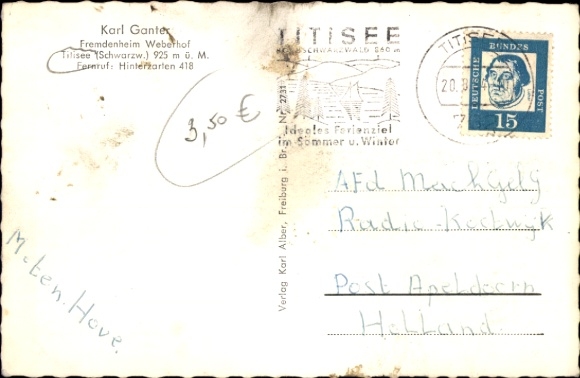 Karl Ganter
Fremdenheim Weberhof
Titisee (Schwarzw.) 925 m ü. M.
Fernruf: Hinterzarten 418
3,50 €
M. ten Hove.
Verlag Karl Alber, Freiburg i. Br. Nr. 2731
TITISEE
HOCHSCHWARZWALD 860 m
Ideales Ferienziel
im Sommer u. Winter
TITISEE
20.
DEUTSCHE BUNDES POST
15
AFd
Radio-Kootwijk
Post Apeldoorn
Holland